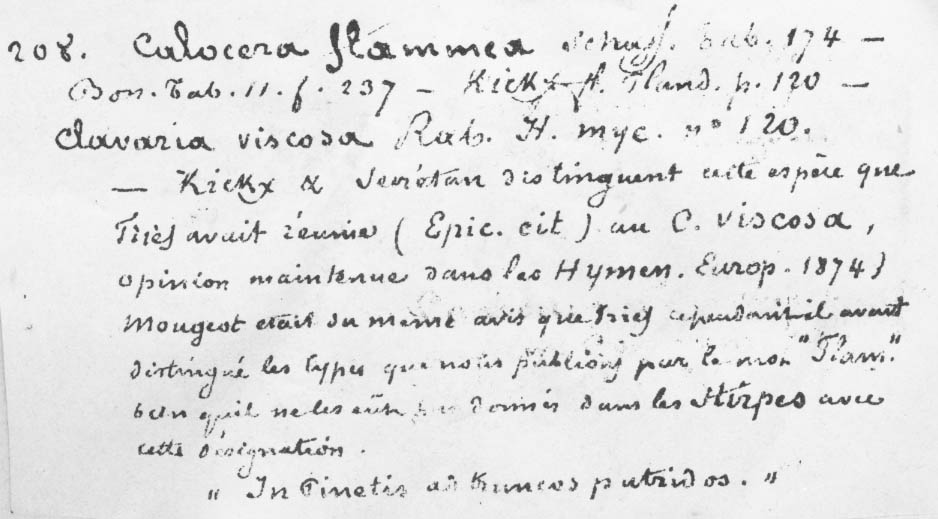 208. Calocera flammea Schæff. tab. 174 —
Bon. Tab. 11. f. 237 — Kickx fl. Fland. p. 120 —
Clavaria viscosa Rab. H. myc. nº 120.
— Kickx & Secrétan distinguent cette espèce que
Fries avait réunie ( Epic. cit ) au C. viscosa,
opinion maintenue dans les Hymen. Europ. 1874)
Mougeot était du même avis que Fries cependant il avait
distingué les types que nous publions par le mot "Flam."
bien qu'il ne les eût pas donnés dans les Stirpes avec
cette désignation.
" In Pinetis ad truncos putridos. "